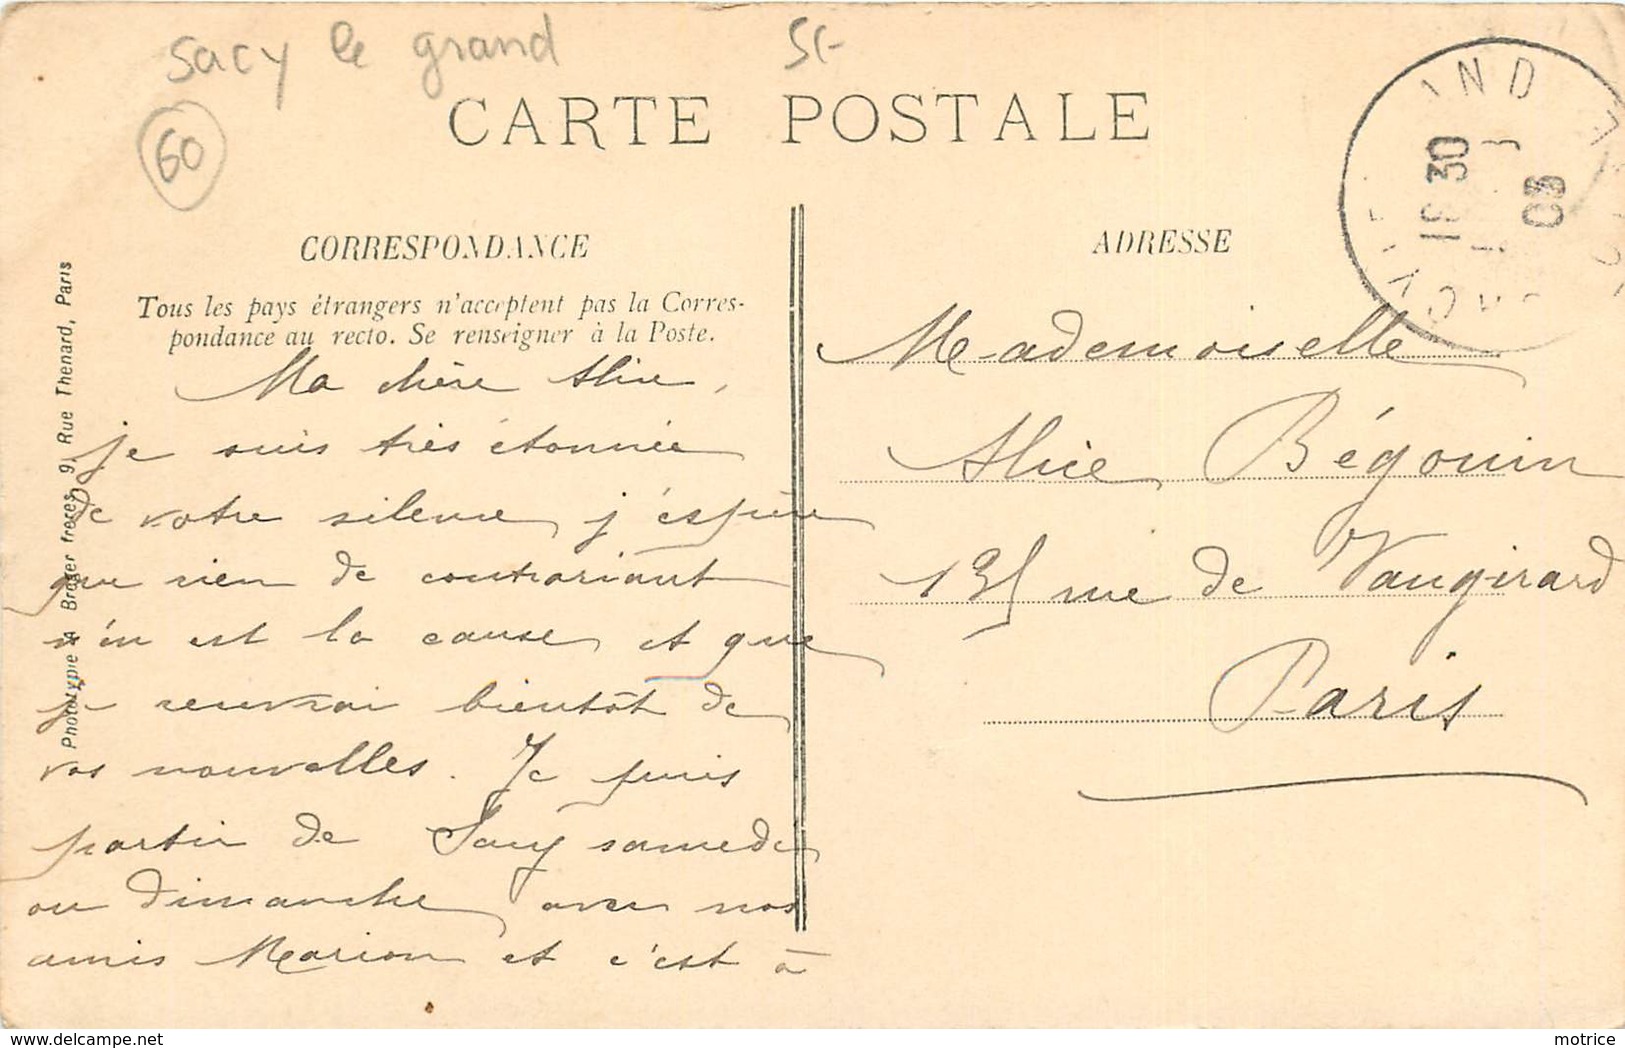 Sacy le grand
60
CARTE POSTALE
CORRESPONDANCE
Tous les pays étrangers n'acceptent pas la Corres-
pondance au recto. Se renseigner à la Poste.
Ma chère Alice,
je suis très étonnée
de votre silence, j'espère
que rien de contrariant
n'en est la cause et que
je recevrai bientôt de
vos nouvelles. Je puis
partir de Sacy samedi
ou dimanche avec nos
amis Marion et c'est à
Phototypie A. Breger frères, 9, Rue Thenard, Paris
ADRESSE
Mademoiselle
Alice Bégouin
135 rue de Vaugirard
Paris
30
delcampe.net
motrice